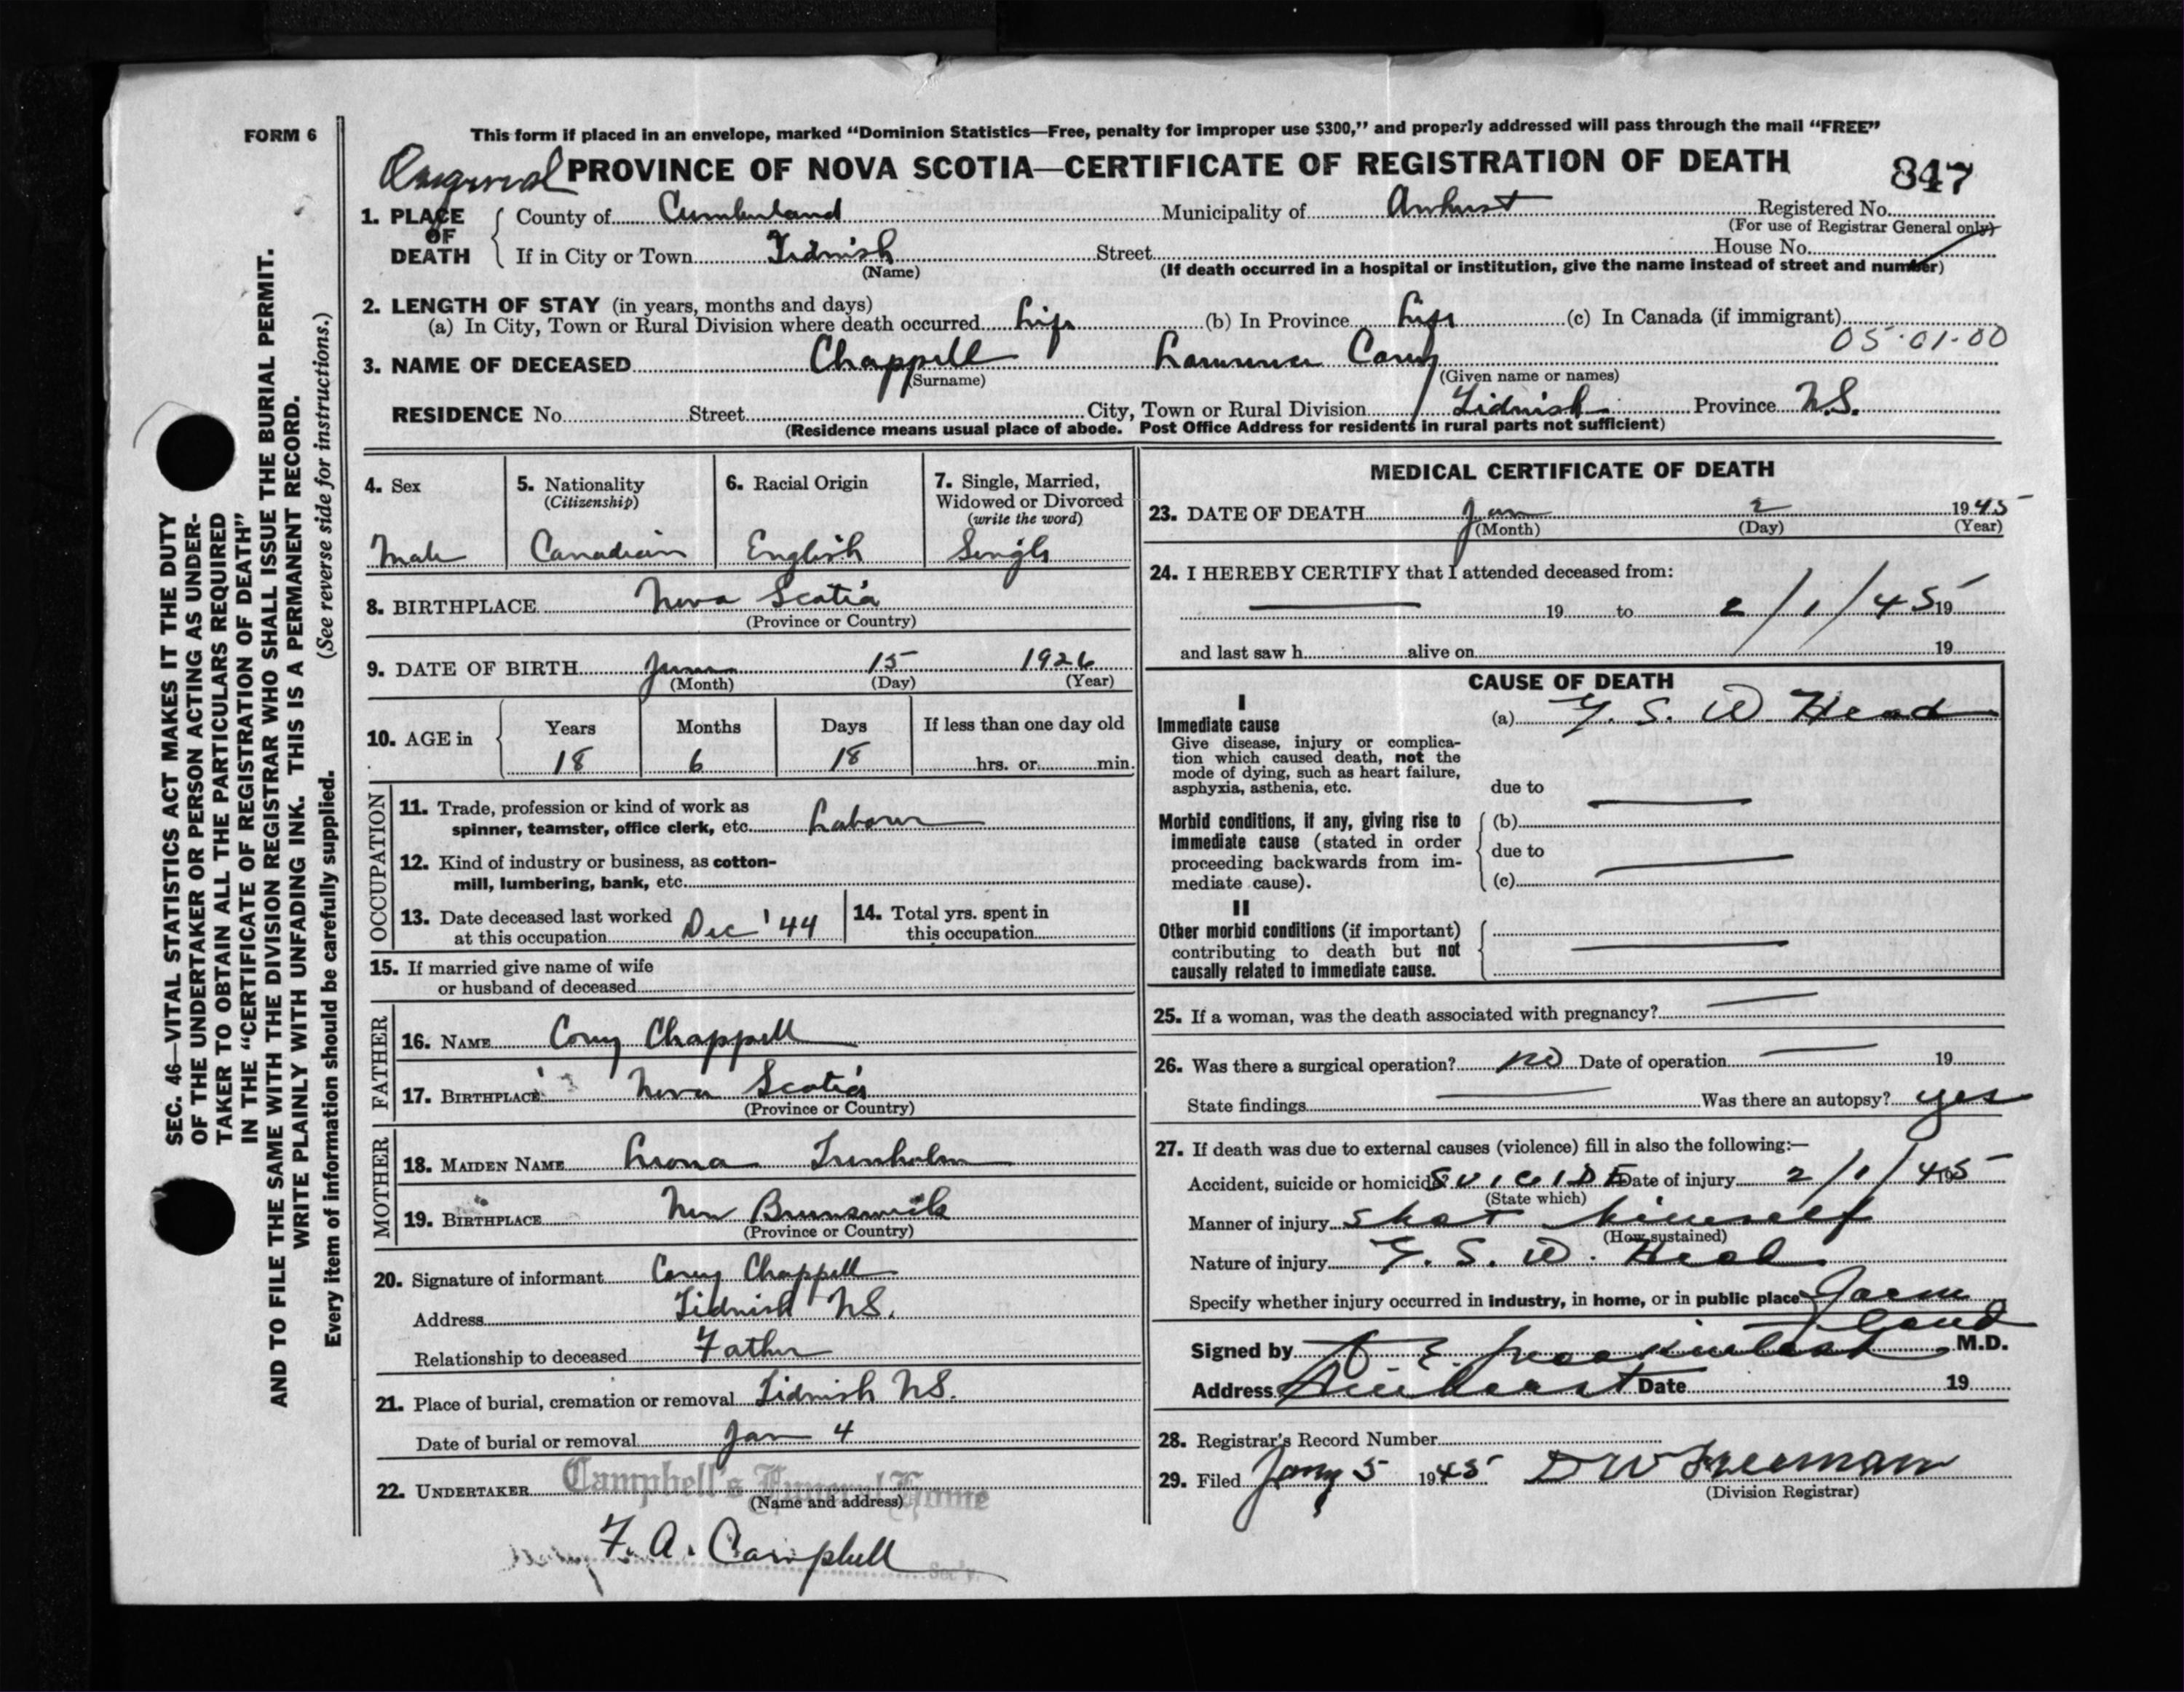 FORM 6
This form if placed in an envelope, marked "Dominion Statistics—Free, penalty for improper use $300," and properly addressed will pass through the mail "FREE"
PROVINCE OF NOVA SCOTIA—CERTIFICATE OF REGISTRATION OF DEATH 847
1. PLACE OF DEATH
County of Cumberland Municipality of Amherst Registered No.
(For use of Registrar General only)
If in City or Town Tidnish Street House No.
(Name) (If death occurred in a hospital or institution, give the name instead of street and number)
2. LENGTH OF STAY (in years, months and days)
(a) In City, Town or Rural Division where death occurred Life (b) In Province Life (c) In Canada (if immigrant)
05·01·00
3. NAME OF DECEASED Chappell Lawrence Corey
(Surname) (Given name or names)
RESIDENCE No. Street City, Town or Rural Division Tidnish Province N.S.
(Residence means usual place of abode. Post Office Address for residents in rural parts not sufficient)
4. Sex
Male
5. Nationality
(Citizenship)
Canadian
6. Racial Origin
English
7. Single, Married,
Widowed or Divorced
(write the word)
Single
8. BIRTHPLACE Nova Scotia
(Province or Country)
9. DATE OF BIRTH June 15 1926
(Month) (Day) (Year)
10. AGE in
Years Months Days If less than one day old
18 6 18 hrs. or min.
OCCUPATION
11. Trade, profession or kind of work as
spinner, teamster, office clerk, etc. Labour
12. Kind of industry or business, as cotton-
mill, lumbering, bank, etc.
13. Date deceased last worked
at this occupation Dec '44
14. Total yrs. spent in
this occupation
15. If married give name of wife
or husband of deceased
FATHER
16. NAME Corey Chappell
17. BIRTHPLACE Nova Scotia
(Province or Country)
MOTHER
18. MAIDEN NAME Leona Trenholm
19. BIRTHPLACE New Brunswick
(Province or Country)
20. Signature of informant Corey Chappell
Address Tidnish NS.
Relationship to deceased Father
21. Place of burial, cremation or removal Tidnish NS.
Date of burial or removal Jan 4
22. UNDERTAKER Campbell's Funeral Home
(Name and address)
F. A. Campbell
Sec'y.
MEDICAL CERTIFICATE OF DEATH
23. DATE OF DEATH Jan 2 1945
(Month) (Day) (Year)
24. I HEREBY CERTIFY that I attended deceased from:
19 to 2/1/45 19
and last saw h alive on 19
CAUSE OF DEATH
I
Immediate cause
Give disease, injury or complica-
tion which caused death, not the
mode of dying, such as heart failure,
asphyxia, asthenia, etc.
(a) G. S. W Head
due to
Morbid conditions, if any, giving rise to
immediate cause (stated in order
proceeding backwards from im-
mediate cause).
(b)
due to
(c)
II
Other morbid conditions (if important)
contributing to death but not
causally related to immediate cause.
25. If a woman, was the death associated with pregnancy?
26. Was there a surgical operation? no Date of operation 19
State findings Was there an autopsy? yes
27. If death was due to external causes (violence) fill in also the following:—
Accident, suicide or homicide SUICIDE Date of injury 2/1/45
(State which)
Manner of injury Shot himself
(How sustained)
Nature of injury G. S. W. Head
Specify whether injury occurred in industry, in home, or in public place
Signed by M.D.
Address Amherst Date 19
28. Registrar's Record Number
29. Filed Jany 5 1945 D W Freeman
(Division Registrar)
SEC. 46—VITAL STATISTICS ACT MAKES IT THE DUTY
OF THE UNDERTAKER OR PERSON ACTING AS UNDER-
TAKER TO OBTAIN ALL THE PARTICULARS REQUIRED
IN THE "CERTIFICATE OF REGISTRATION OF DEATH"
AND TO FILE THE SAME WITH THE DIVISION REGISTRAR WHO SHALL ISSUE THE BURIAL PERMIT.
WRITE PLAINLY WITH UNFADING INK. THIS IS A PERMANENT RECORD.
Every item of information should be carefully supplied. (See reverse side for instructions.)